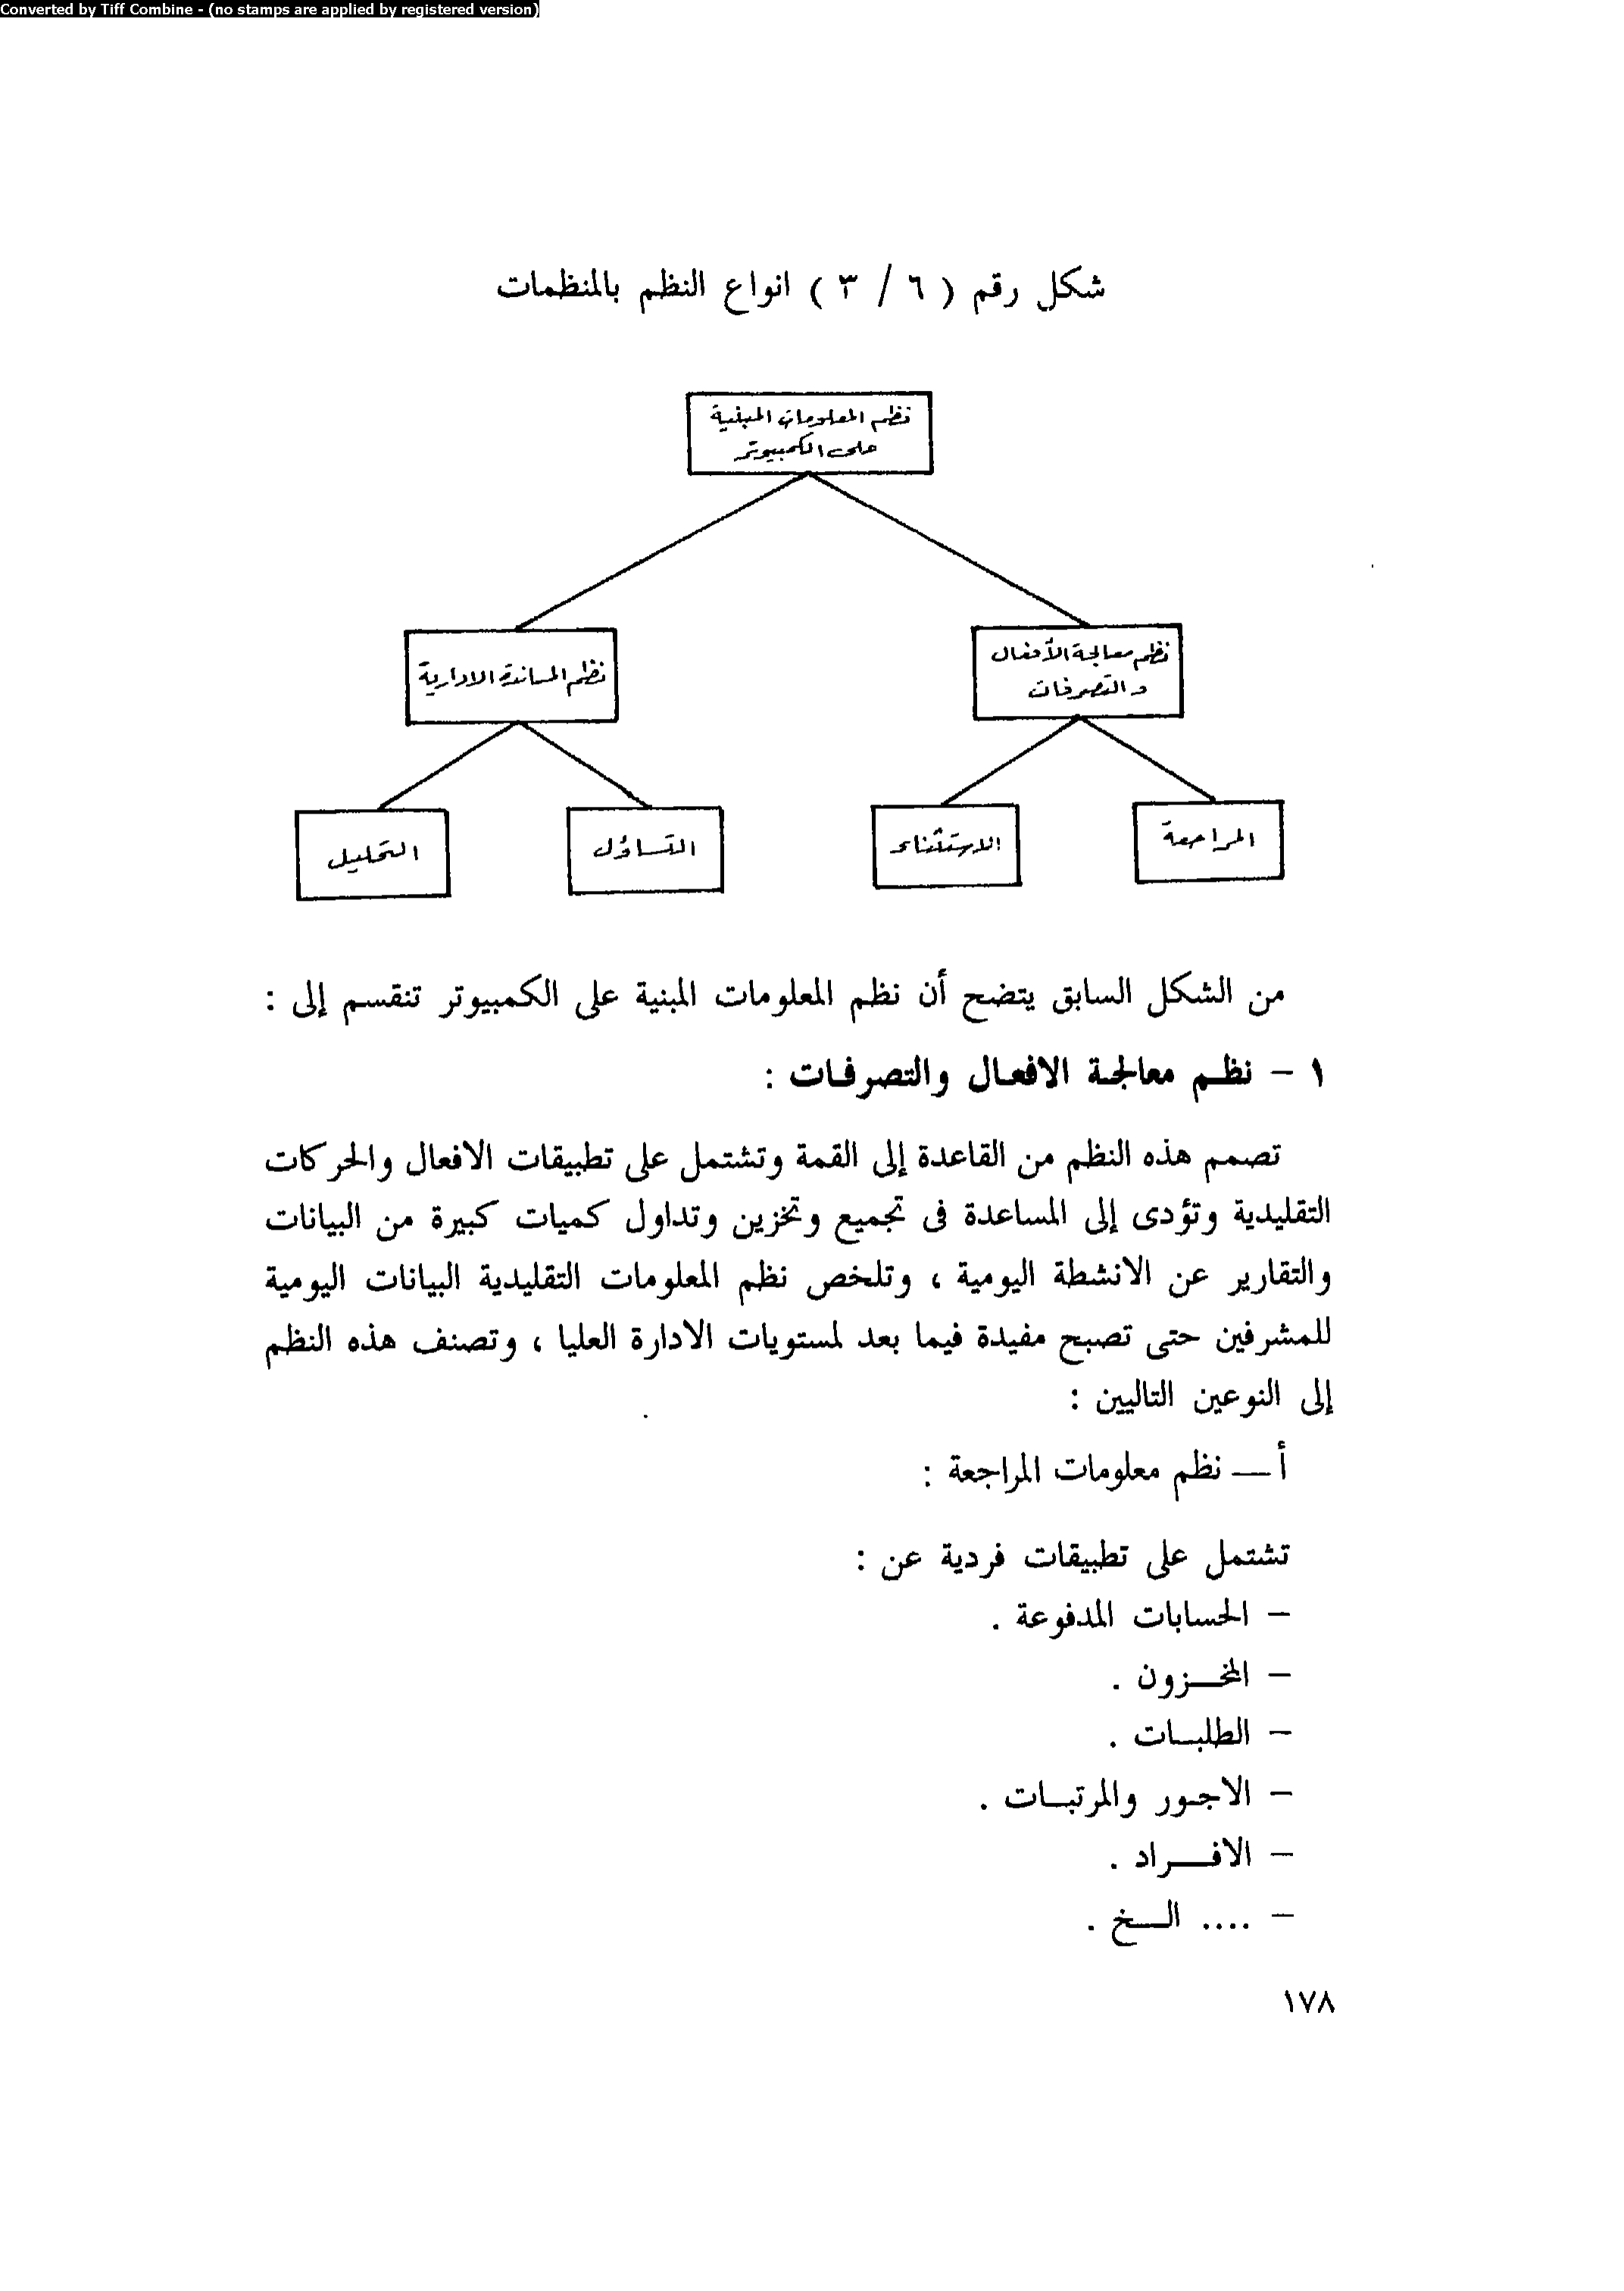 Converted by Tiff Combine - (no stamps are applied by registered version)
شكل رقم ( ٦ / ٣ ) انواع النظم بالمنظمات
نظم المعلومات المبنية
على الكمبيوتر
نظم معالجة الأفعال
والتصرفات
نظم المساندة الادارية
المراجعة
الاستثناء
التساؤل
التحليل
من الشكل السابق يتضح أن نظم المعلومات المبنية على الكمبيوتر تنقسم إلى :
١ - نظم معالجة الافعال والتصرفات :
تصمم هذه النظم من القاعدة إلى القمة وتشتمل على تطبيقات الافعال والحركات
التقليدية وتؤدى إلى المساعدة فى تجميع وتخزين وتداول كميات كبيرة من البيانات
والتقارير عن الانشطة اليومية ، وتلخص نظم المعلومات التقليدية البيانات اليومية
للمشرفين حتى تصبح مفيدة فيما بعد لمستويات الادارة العليا ، وتصنف هذه النظم
إلى النوعين التاليين :
أ — نظم معلومات المراجعة :
تشتمل على تطبيقات فردية عن :
- الحسابات المدفوعة .
- المخزون .
- الطلبات .
- الاجور والمرتبات .
- الافراد .
- .... الخ .
١٧٨